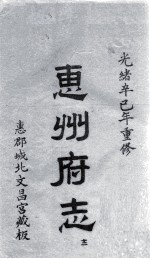 光緒辛巳年重修
惠州府志
十二
惠郡城北文昌宮藏板